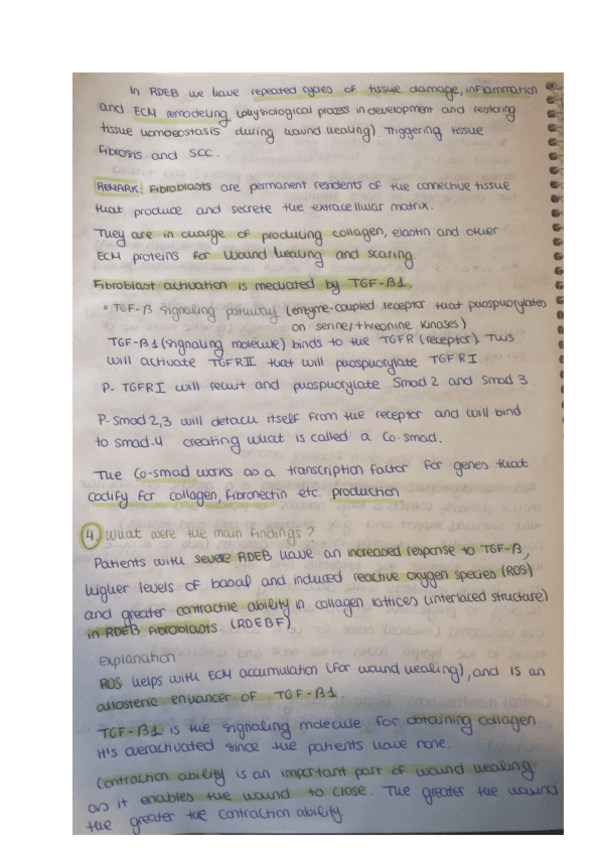 In RDEB we have repeated cycles of tissue damage, inflammation
and ECM remodeling (physiological process in development and restoring
tissue homoeostasis during wound healing). Triggering tissue
Fibrosis and SCC.
REMARK: Fibroblasts are permanent residents of the connective tissue
that produce and secrete the extracellular matrix.
They are in charge of producing collagen, elastin and other
ECM proteins for wound healing and scaring.
Fibroblast activation is mediated by TGF-β1.
• TGF-β signaling pathway (enzyme-coupled receptor that phosphorylates
on serine/threonine kinases)
TGF-β1 (signaling molecule) binds to the TGFR (receptor). This
will activate TGFRII that will phosphorylate TGFRI.
P- TGFRI will recruit and phosphorylate Smad 2 and Smad 3.
P-Smod 2,3 will detach itself from the receptor and will bind
to smad-4 creating what is called a Co-smad.
The Co-smad works as a transcription factor for genes that
codify for collagen, fibronectin etc. production
4. What were the main findings?
Patients with severe RDEB have an increased response to TGF-β,
higher levels of basal and induced reactive oxygen species (ROS)
and greater contractile ability in collagen lattices (interlaced structure)
in RDEB Fibroblasts. (RDEBF)
Explanation
ROS helps with ECM accumulation (for wound healing), and is an
allosteric enhancer of TGF-β1.
TGF-β1 is the signaling molecule for obtaining collagen.
It's overactivated since the patients have none.
Contraction ability is an important part of wound healing
as it enables the wound to close. The greater the wound
the greater the contraction ability.